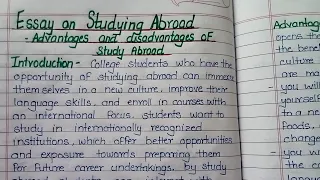 Essay on Studying Abroad
- Advantages and disadvantages of
Study Abroad
Introduction - College students who have the
opportunity of studying abroad can immerse
themselves in a new culture, improve their
language skills, and enroll in courses with
an international focus. students want to
study in internationally recognized
institutions, which offer better opportunities
and exposure towards preparing them
for future career undertakings. by study
Advantage
opens the
the benef
culture
are ma
- you will
yourself
to a ne
Foods,
change
- you w
the co
langua